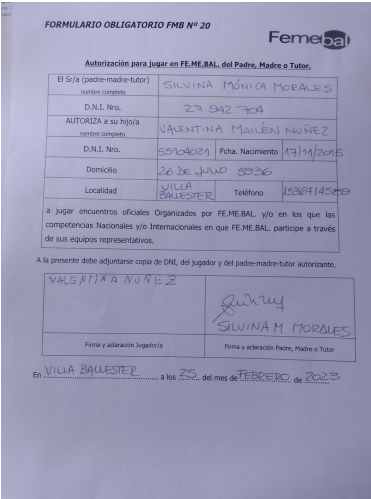 FORMULARIO OBLIGATORIO FMB Nº 20
Femebal
Autorización para jugar en FE.ME.BAL. del Padre, Madre o Tutor.
El Sr/a (padre-madre-tutor) SILVINA MÓNICA MORALES
nombre completo
D.N.I. Nro. 27.942.704
AUTORIZA a su hijo/a VALENTINA MAILÉN NÚÑEZ
nombre completo
D.N.I. Nro. 55104021 Fcha. Nacimiento 17/11/2015
Domicilio 26 DE JULIO 5936
Localidad VILLA BALLESTER Teléfono
a jugar encuentros oficiales Organizados por FE.ME.BAL. y/o en los que las
competencias Nacionales y/o Internacionales en que FE.ME.BAL. participe a través
de sus equipos representativos.
A la presente debe adjuntarse copia de DNI, del jugador y del padre-madre-tutor autorizante.
VALENTINA NUÑEZ
SILVINA M MORALES
Firma y aclaración Jugador/a Firma y aclaración Padre, Madre o Tutor
En VILLA BALLESTER a los 25 del mes de FEBRERO de 2023